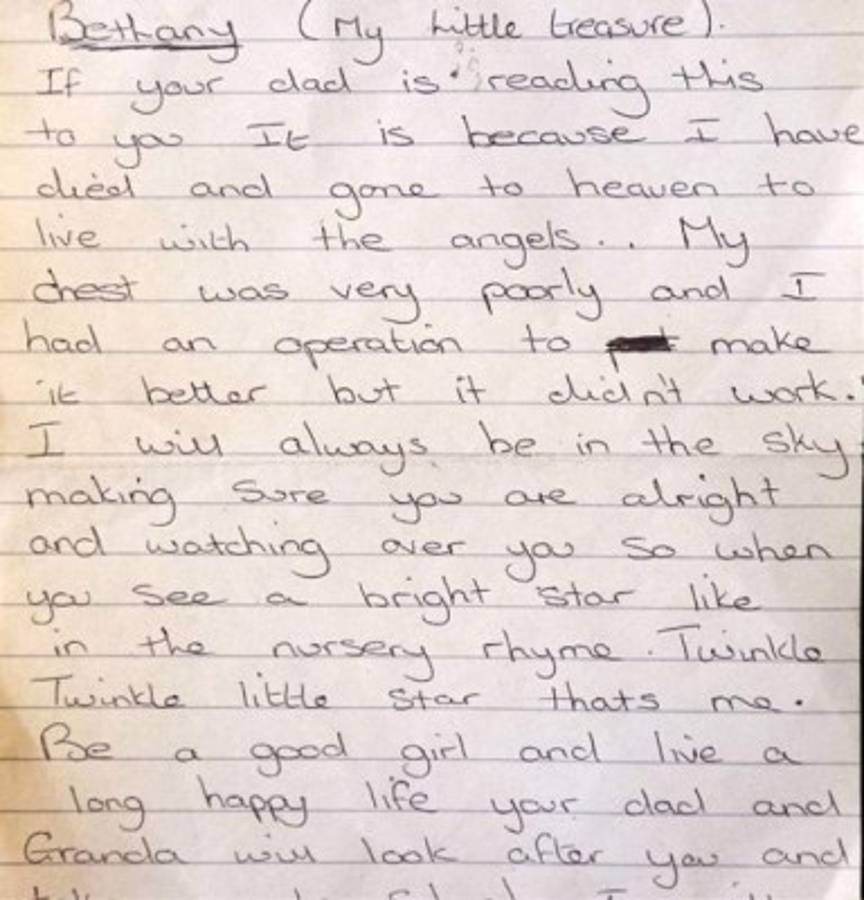 Bethany (My little treasure).
If your dad is reading this
to you It is because I have
died and gone to heaven to
live with the angels.. My
chest was very poorly and I
had an operation to make
it better but it didn't work.
I will always be in the sky
making sure you are alright
and watching over you so when
you see a bright star like
in the nursery rhyme. Twinkle
Twinkle little star thats me.
Be a good girl and live a
long happy life your dad and
Granda will look after you and